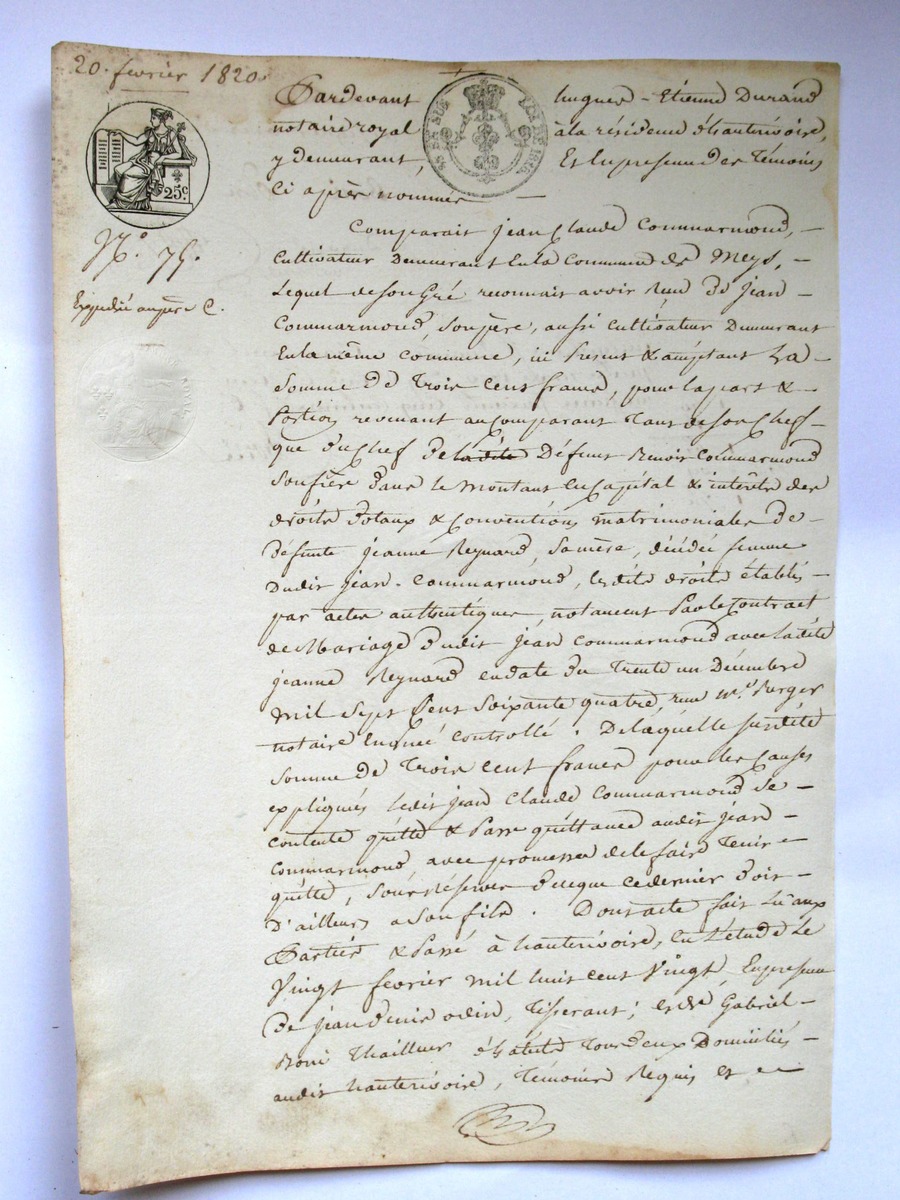 20. fevrier 1820
Pardevant hugues - Etienne Durand
notaire royal à la résidence d'hauterivoire,
y demeurant, Et en presence des Témoins
Ci après nommés —
25c.
N.° 75.
Expedié au père C.
Comparait jean Claude Commarmond, —
Cultivateur Demeurant En la Commune de Meys, —
Lequel de son Gré reconnait avoir reçu de jean —
Commarmond, son père, aussi Cultivateur Demeurant
En la même Commune, ici Present & acceptant La —
Somme de Trois cent francs, pour la part &
Portion revenant au Comparant Tant de son Chef —
que du Chef de ladite Défunt Benoit Commarmond
Son frère dans le Montant En Capital & interêts des
droits Dotaux & Conventions matrimoniales De —
Défunte jeanne Reynard, Sa mère, décédée femme
Dudit jean - Commarmond, lesdits droits établis —
par actes authentiques, notamment Par le Contract
de Mariage dudit jean Commarmond avec ladite
jeanne Reynard en date du Trente un Décembre
mil Sept Cent Soixante quatre, reçu M.e Berger
notaire Enquié Controllé. De laquelle susdite
Somme de Trois cent francs pour les Causes
expliqués ledit jean Claude Commarmond se —
contente quitte & Passe quittance audit jean —
Commarmond avec promesse de le faire Tenir —
quitte, sous réserves de ce que ce dernier Doit —
D'ailleurs a Son fils. Dont acte fait Lu aux
Parties & Passé à hauterivoire, En L'étude Le
Vingt fevrier mil huit cent Vingt, En presence
De jean denis odin, Tisserant; et de Gabriel —
Tailleur d'habits Tous deux Domiciliés —
audit hauterivoire, Témoins Requis et —